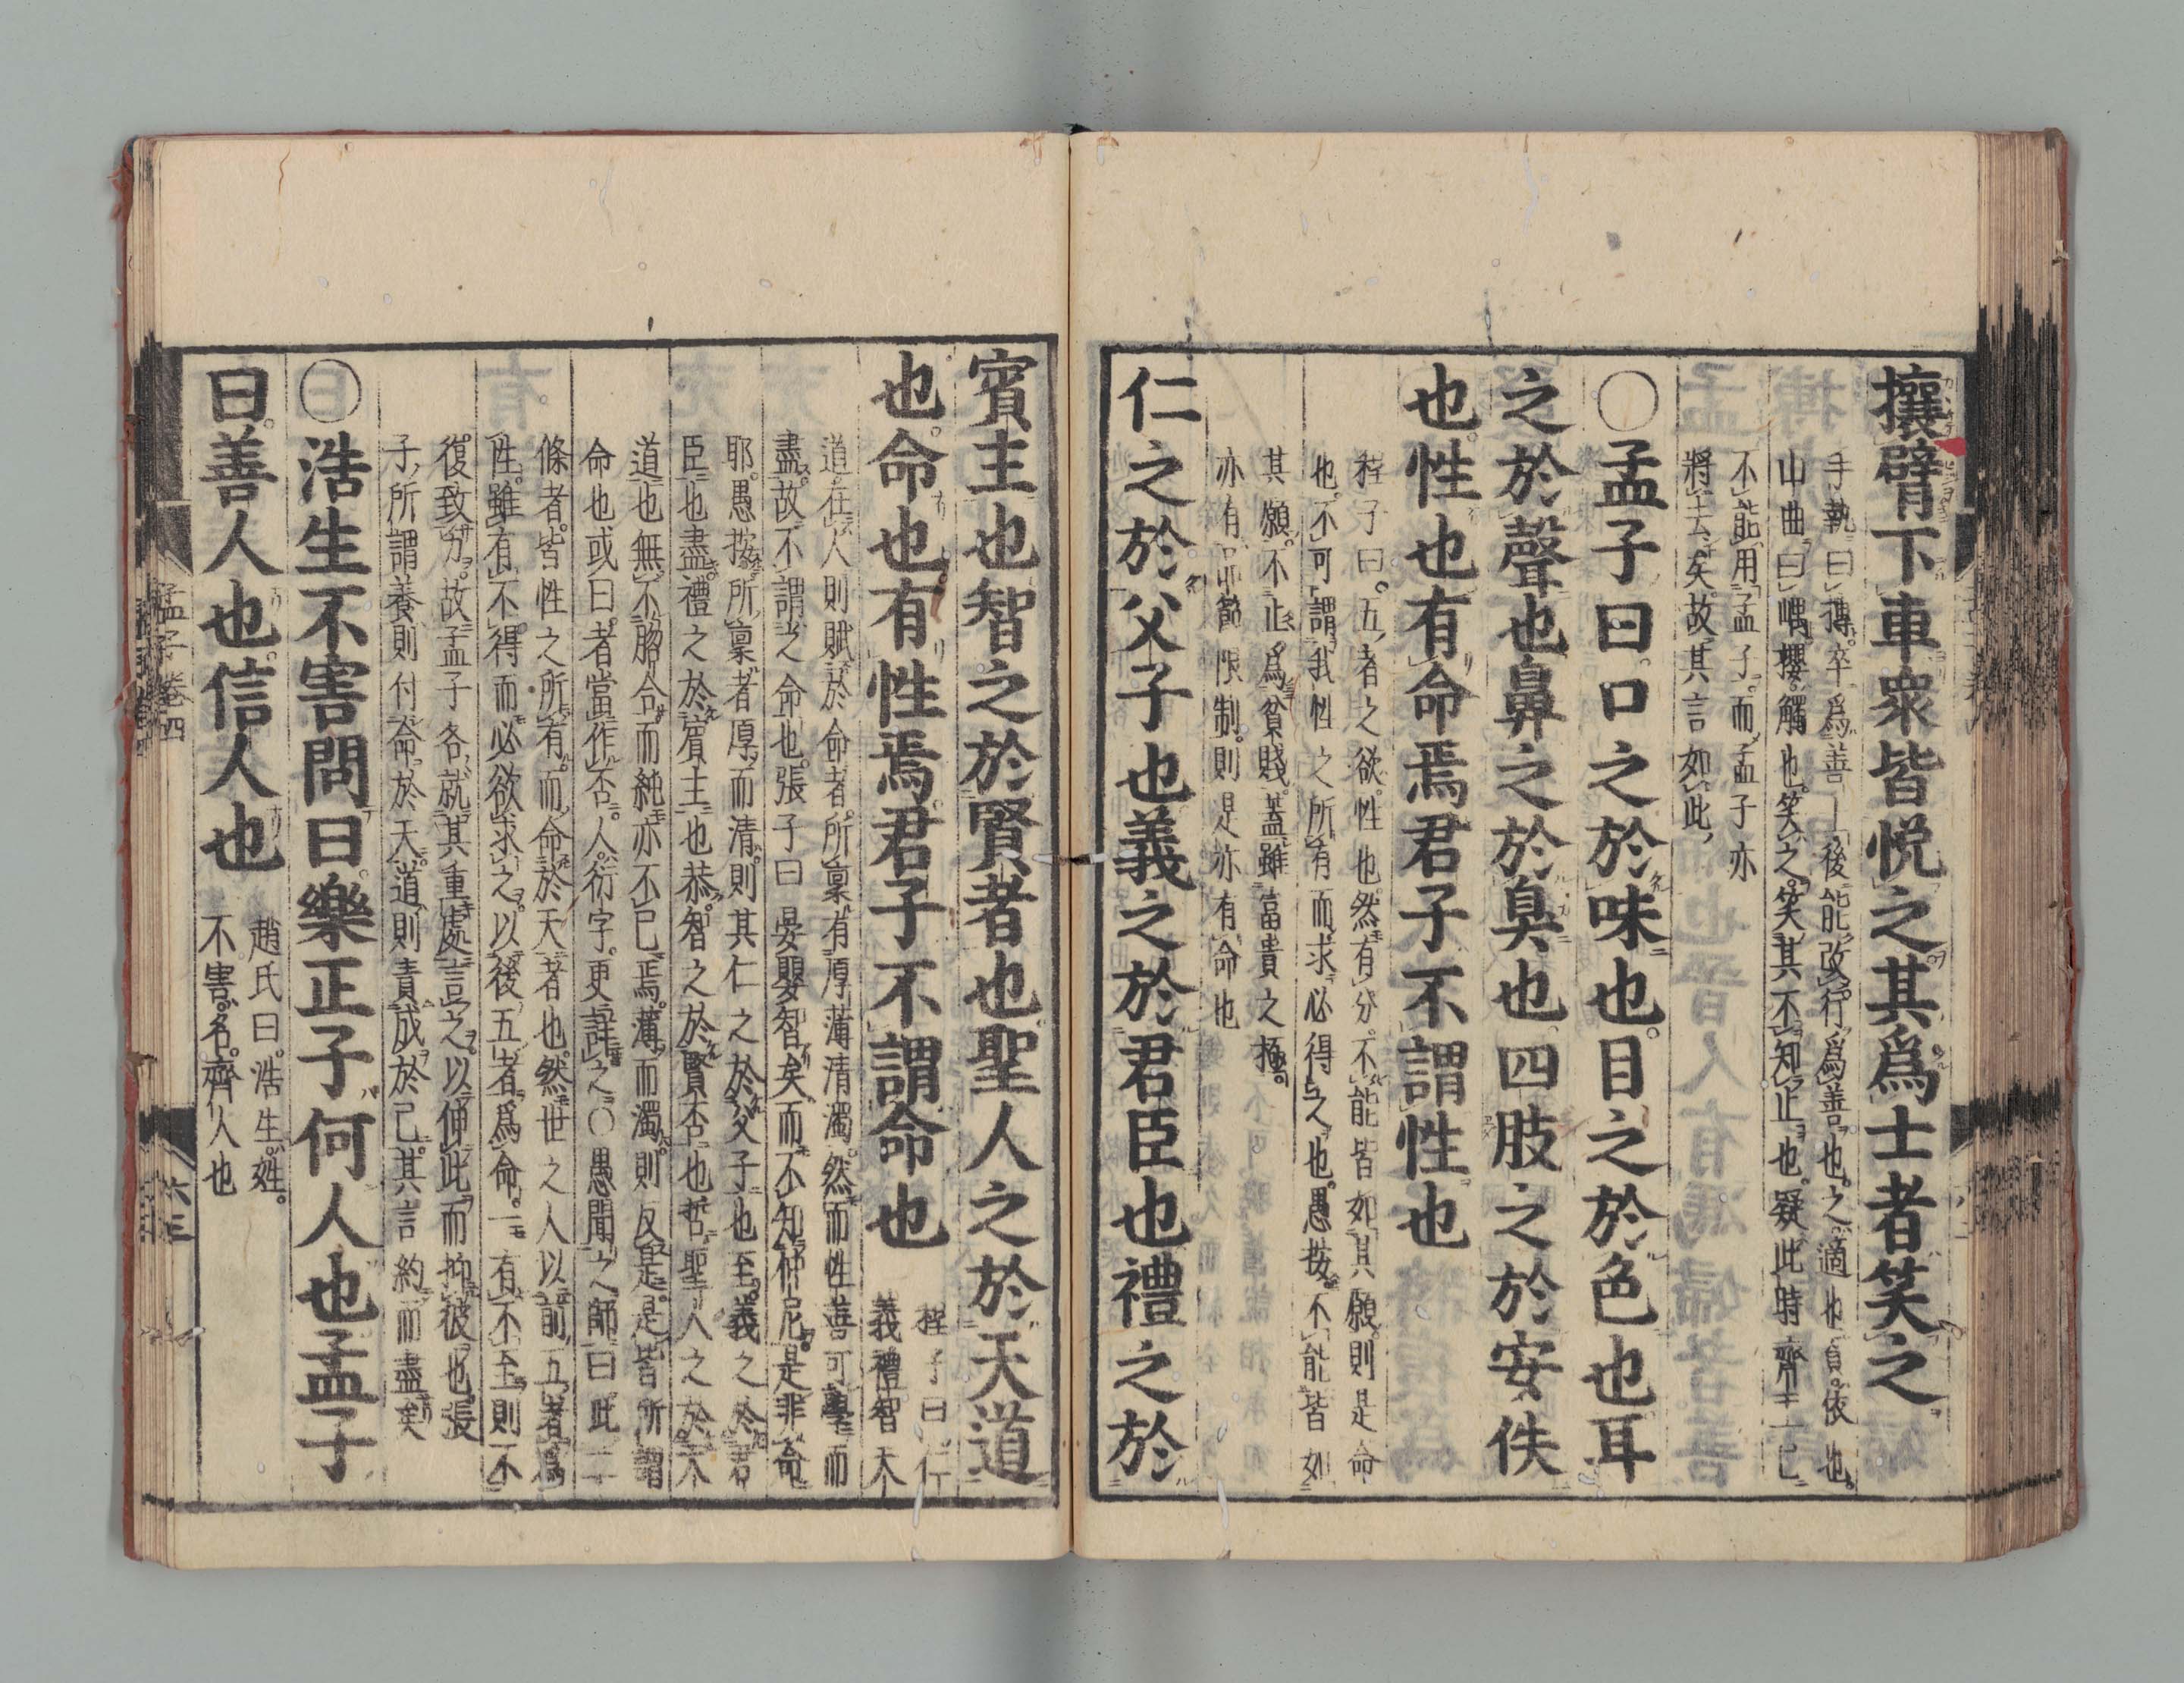 攘臂下車衆皆悦之其爲士者笑之
手執曰搏。卒爲善。後能改行爲善也。之。適也。負。依也。
山曲曰嵎。攖。觸也。笑之。笑其不知止也。疑此時齊王已
不能用孟子。而孟子亦
將去矣。故其言如此
〇孟子曰口之於味也目之於色也耳
之於聲也鼻之於臭也四肢之於安佚
也性也有命焉君子不謂性也
程子曰。五者之欲。性也。然有分。不能皆如其願。則是命
也。不可謂我性之所有而求必得之也。愚按。不能皆如
其願。不止爲貧賤。蓋雖富貴之極。
亦有品節限制。則是亦有命也
仁之於父子也義之於君臣也禮之於
賓主也智之於賢者也聖人之於天道
也命也有性焉君子不謂命也
程子曰。仁
義禮智天
道在人則賦於命者。所稟有厚薄清濁。然而性善可學而
盡。故不謂之命也。張子曰晏嬰智矣。而不知仲尼。是非命
耶。愚按。所稟者厚而清。則其仁之於父子也至。義之於君
臣也盡。禮之於賓主也恭。智之於賢否也哲。聖人之於天
道也無不脗合而純亦不已焉。薄而濁。則反是。是皆所謂
命也或曰。者當作否。人衍字。更詳之〇愚聞之師曰此二
條者。皆性之所有。而命於天者也。然世之人以前五者爲
性。雖有不得。而必欲求之。以後五者爲命。一有不至。則不
復致力。故孟子各就其重處言之。以伸此而抑彼也。張
子所謂養則付命於天。道則責成於己。其言約而盡矣
〇浩生不害問曰樂正子何人也孟子
曰善人也信人也
趙氏曰。浩生。姓。
不害。名。齊人也
孟子卷四
六三